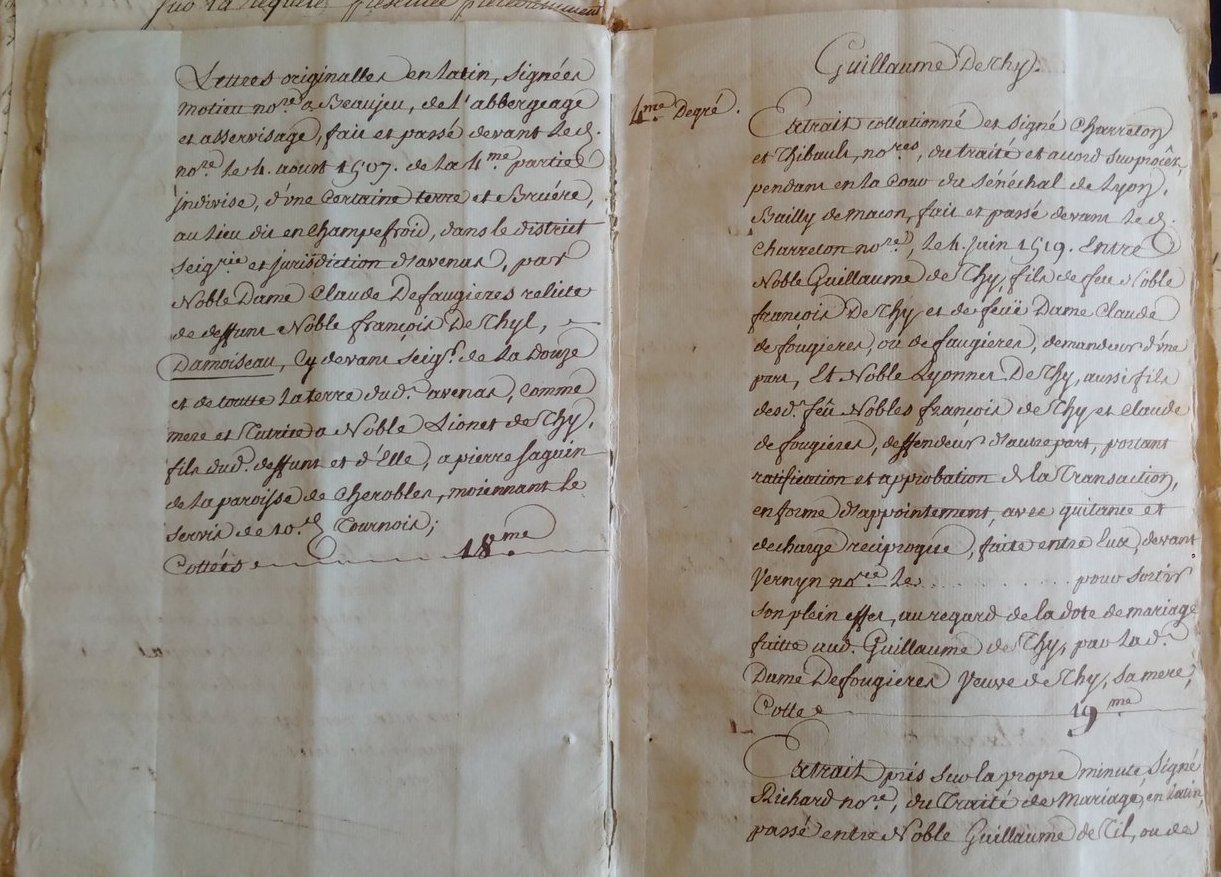 sur la requete, presentée précédemment
Lettres originalles en latin, signées
Motieu no.re a Beaujeu, de l'abbergeage
et asservisage, fait et passé devant le d.
no.re le 4. aoust 1507. de la 4.me partie
indivise, d'vne certaine terre et Bruiére,
au lieu dit en Champefroid, dans le district
seig.rie et jurisdiction d'avenas, par
Noble Dame Claude Defougieres relicte
de deffunt Noble françois De Thyl,
Damoiseau, Cy devant seig.r de la Douze
et de toutte la terre dud. avenas, comme
mere et Tutrice a Noble Lionet de Thy,
fils dud. deffunt et d'Elle, a pierre saguin
de la paroisse de Cherobles, moiennant le
servis de 10.d Tournois;
Cottées 18.me
Guillaume De Thy.
4.me Degré.
Extrait collationné et signé Charreton
et Thibault, no.res, du traité et acord sur procès,
pendant en la Cour du Sénéchal de Lyon,
Bailly de macon, fait et passé devant le d.
Charreton no.re, le 4. Juin 1519. Entre
Noble Guillaume de Thy, fils de feu Noble
françois De Thy et de feüe Dame Claude
de fougieres, ou de faugieres, demandeur d'vne
part, Et Noble Lyonnet De Thy, aussi fils
desd. feû Nobles françois de Thy et Claude
de fougieres, deffendeur d'autre part, portant
ratification et approbation de la Transaction,
en forme d'appointement, avec quitance et
décharge réciproque, faite entre Eux, devant
Vernyn no.re le . . . . . . . . . . pour sortir
son plein effet, au regard de la dote de mariage
faitte aud. Guillaume de Thy, par la d.
Dame Defougieres Veuve de Thy, sa mere,
Cotte 19.me
Extrait pris sur la propre minute, signé
Richard no.re, du Traité de Mariage, en latin,
passé entre Noble Guillaume de Til, ou de